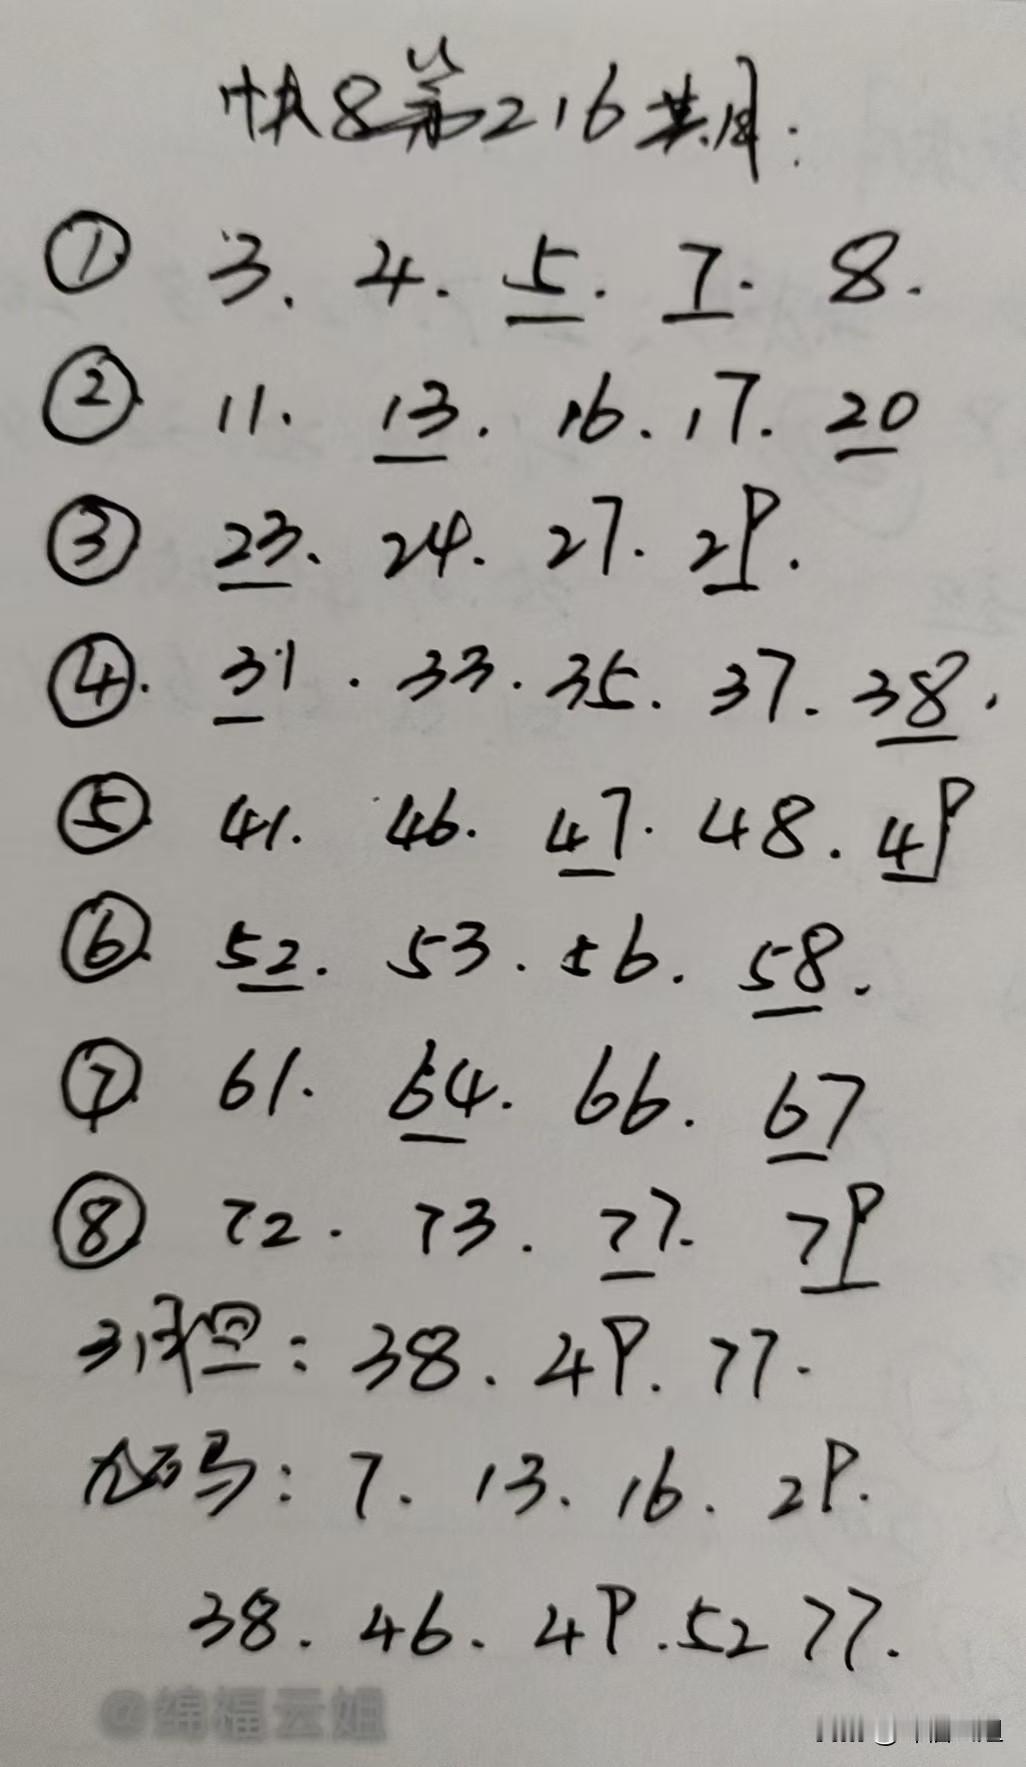 快8第216期:
① 3. 4. 5. 7. 8.
② 11. 13. 16. 17. 20
③ 23. 24. 27. 29.
④. 31. 33. 35. 37. 38.
⑤ 41. 46. 47. 48. 49
⑥ 52. 53. 56. 58.
⑦ 61. 64. 66. 67
⑧ 72. 73. 77. 79
3胆: 38. 49. 77.
九码: 7. 13. 16. 29.
38. 46. 49. 52 77.
@绵福云姐